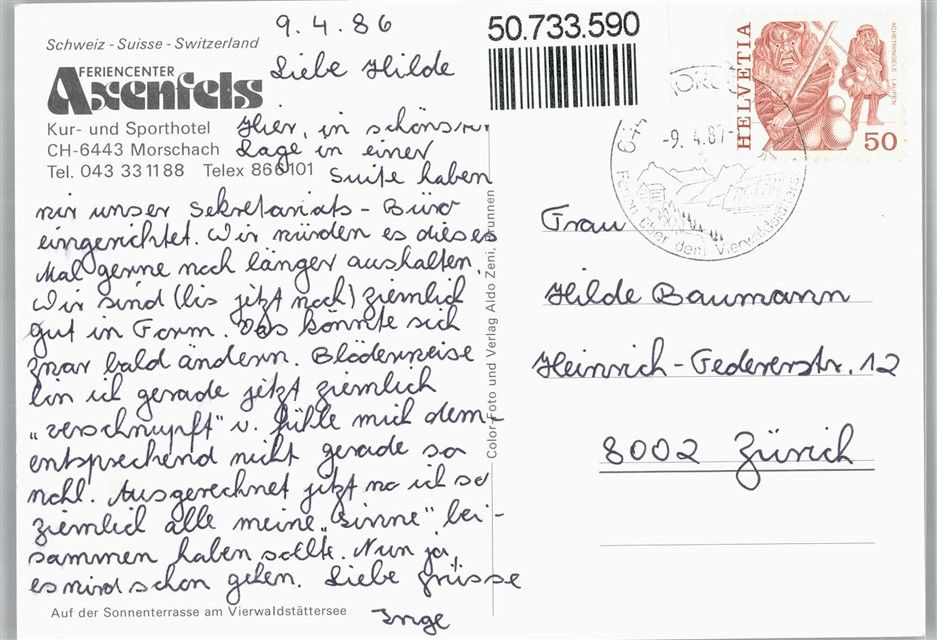 Schweiz - Suisse - Switzerland
FERIENCENTER
Axenfels
Kur- und Sporthotel
CH-6443 Morschach
Tel. 043 33 11 88 Telex 866 101
9. 4. 86
Liebe Hilde
Hier, in schönster
Lage in einer
Suite haben
wir unser Sekretariats-Büro
eingerichtet. Wir würden es dieses
Mal gerne noch länger aushalten.
Wir sind (bis jetzt noch) ziemlich
gut in Form. Das könnte sich
zwar bald ändern. Blöderweise
bin ich gerade jetzt ziemlich
„verschnupft" u. fühle mich dem-
entsprechend nicht gerade so
wohl. Ausgerechnet jetzt wo ich so
ziemlich alle meine „Sinne" bei-
sammen haben sollte. Nun ja,
es wird schon gehen. Liebe Grüsse
Inge
Auf der Sonnenterrasse am Vierwaldstättersee
Color-Foto und Verlag Aldo Zeni, Brunnen
50.733.590
HELVETIA
ACHETRINGELE LAUPEN
50
-9. 4.8
über dem Vierwaldstätter
Frau
Hilde Baumann
Heinrich-Federerstr. 12
8002 Zürich